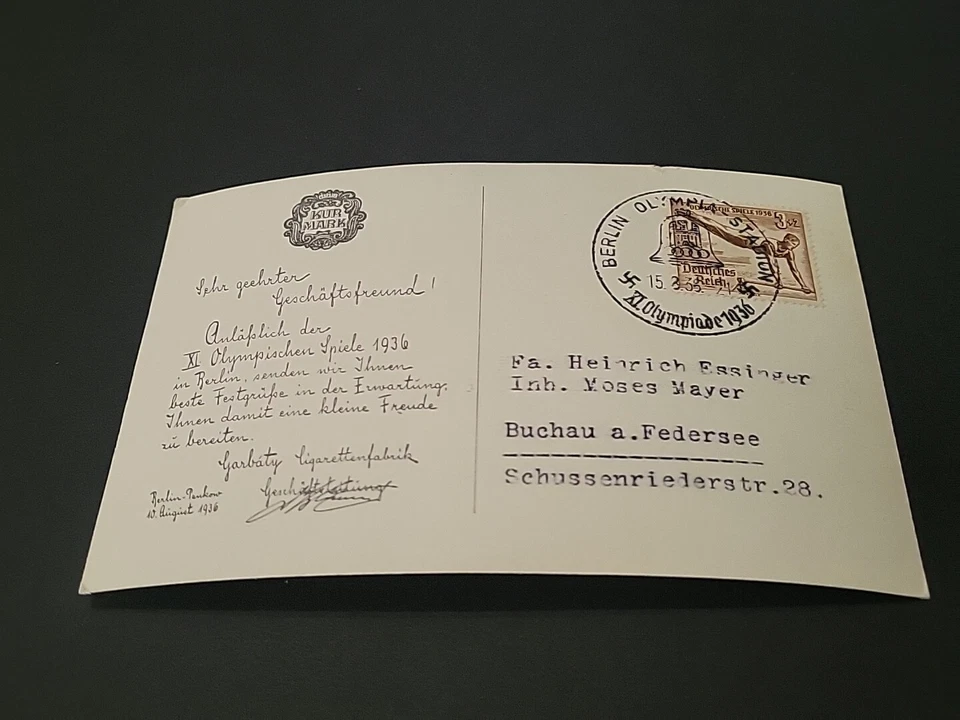 KUR
MARK
Sehr geehrter
Geschäftsfreund!
Anläßlich der
XI. Olympischen Spiele 1936
in Berlin, senden wir Ihnen
beste Festgrüße in der Erwartung,
Ihnen damit eine kleine Freude
zu bereiten.
Garbáty Cigarettenfabrik
Geschäftsleitung
Berlin-Pankow
10. August 1936
BERLIN OLYMPIA-STADION
15.8.36
XI. Olympiade 1936
OLYMPISCHE SPIELE 1936
Deutsches
Reich
Fa. Heinrich Essinger
Inh. Moses Mayer
Buchau a.Federsee
Schussenriederstr.28.